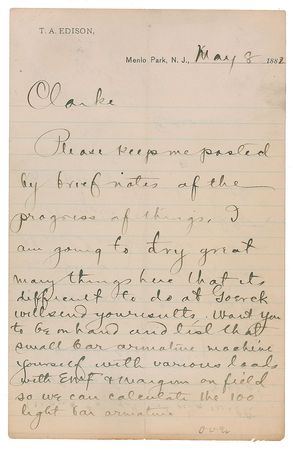 T. A. EDISON,
Menlo Park, N. J., May 8 1882
Clarke
Please keep me posted
by brief notes of the
progress of things. I
am going to try great
many things here that its
difficult to do at Goerck
will send you results. Want you
to be on hand and test that
small bar armature machine
yourself with various loads
with Emf & margin on field
so we can calculate the 100
light bar armature
over